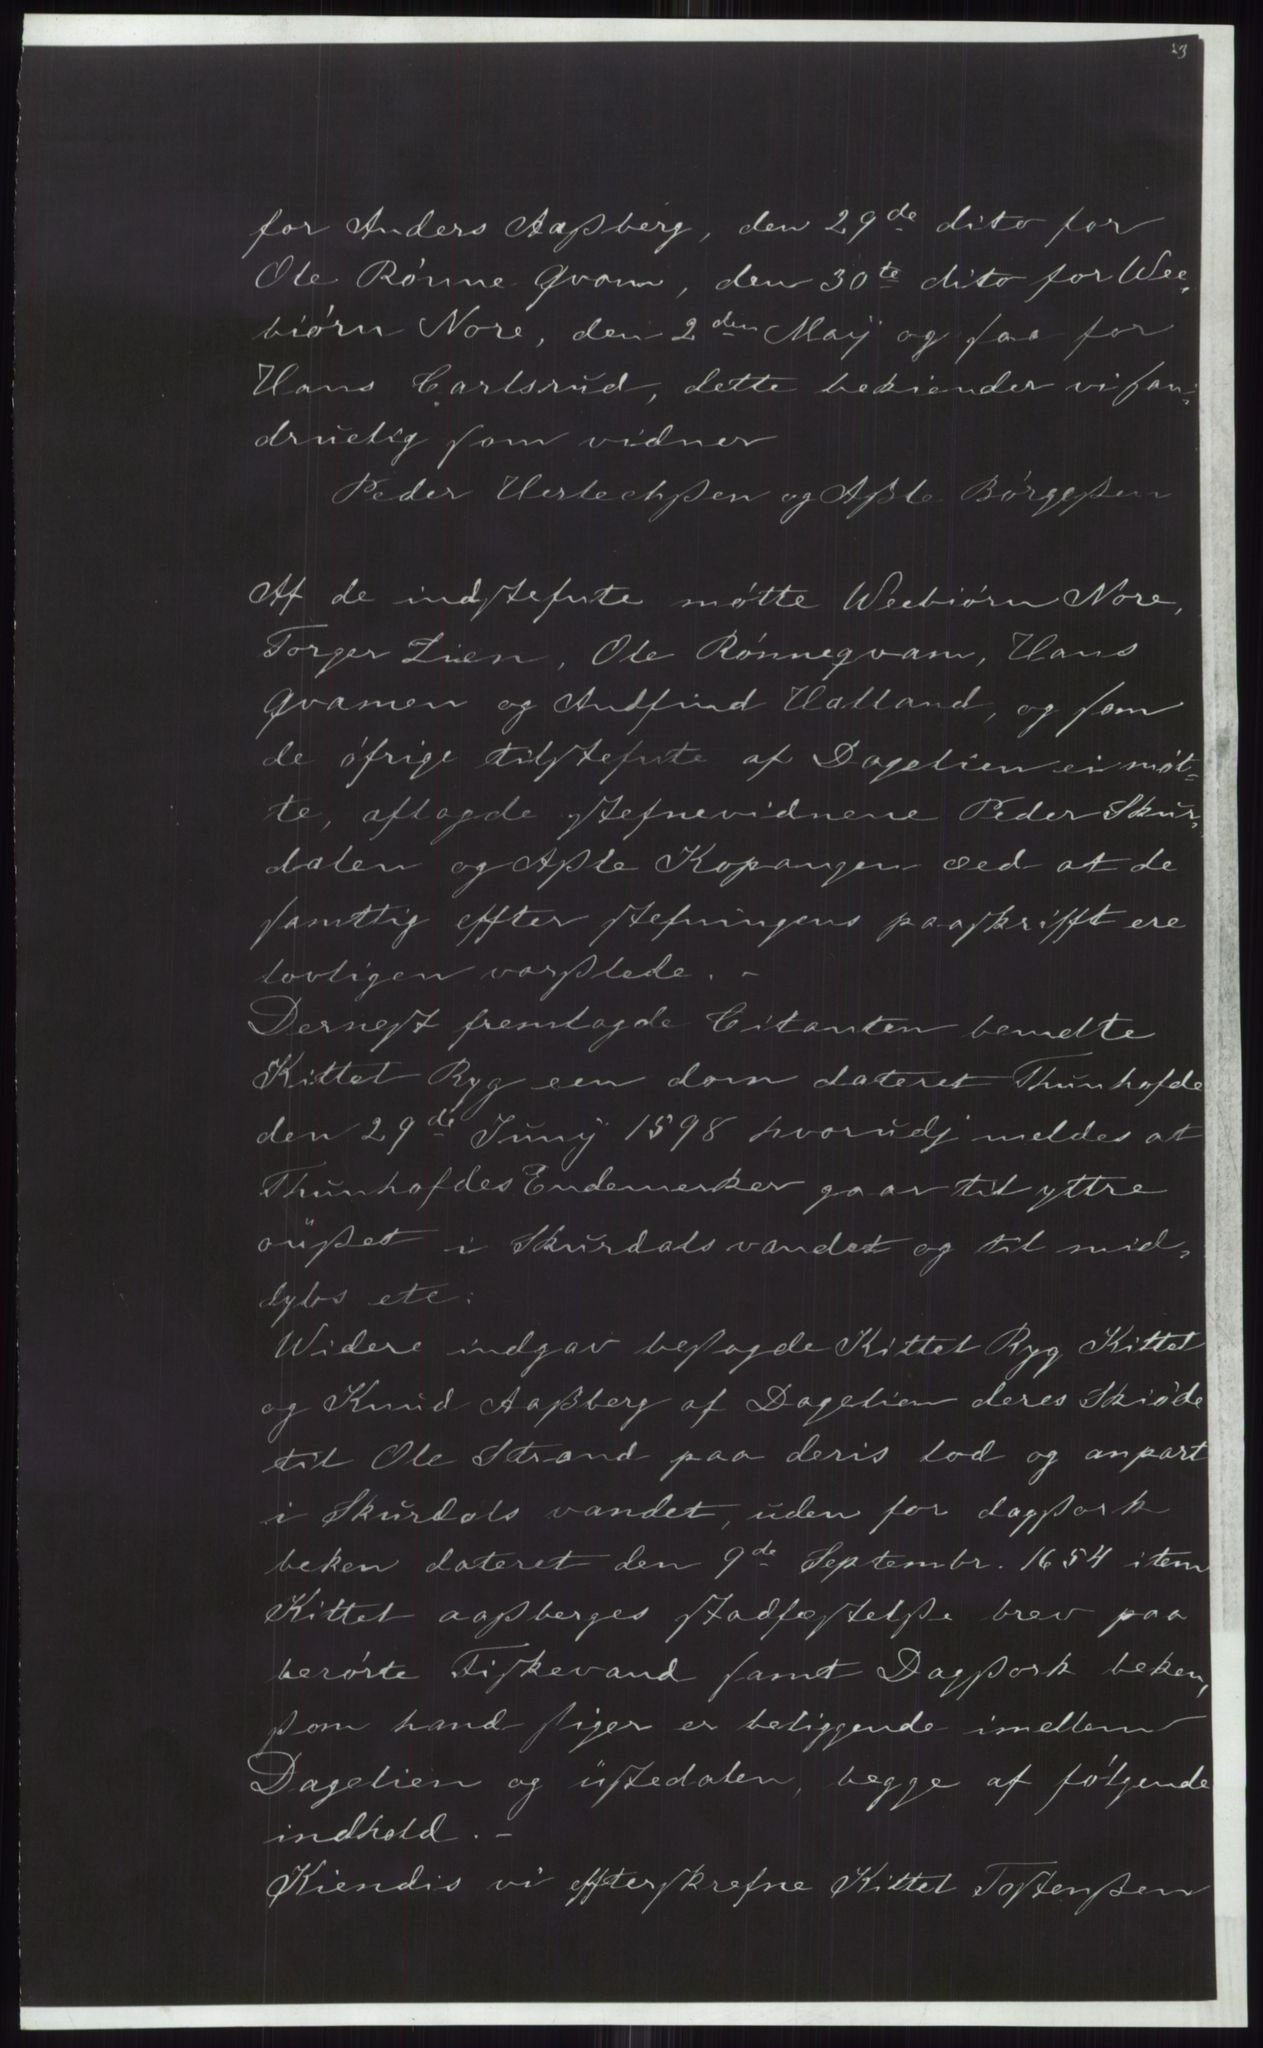 23
for Anders Aaßberg, den 29de dito for
Ole Rönne Qvam, den 30te dito for Wee,
biörn Nore, den 2den Maij og saa for
Hans Carlsrud, dette bekiender vi san-
druelig som vidner
Peder Herlechßen og Aßle Börgeßen
Af de indstefnte mötte Weebiörn Nore,
Torger Lien, Ole Rönneqvam, Hans
Qvamen og Andfind Halland, og som
de öfrige tilstefnte af Dagelien ei möt=
te, aflagde stefnevidnene Peder Skur,
dalen og Aßle Kopangen eed at de
samtlig effter stefningens paaskrifft ere
lovligen varßlede. -
Dernest fremlagde Citanten bemelte
Kittel Ryg een dom dateret Thunhofde
den 29de Junij 1598 hvorudj meldes at
Thunhofdes Endemerker gaar til yttre
oüßet i Skurdals vandet og til mid,
dybs etc:
Widere indgav beßagde Kittel Ryg Kittel
og Knud Aaßberg af Dagelien deres Skiöde
til Ole Strand paa deris lod og anpart
i Skurdals vandet, uden for dagßork
beken dateret den 9de Septembr. 1654 item
Kittel aaßberges stadfestelße brev paa
berörte Fiskevand samt Dagßork beken,
ßom hand siger er beliggende imellem
Dagelien og üstedalen, begge af fölgende
indhold. -
Kiendis vi effterskrefne Kittel Tostenßen